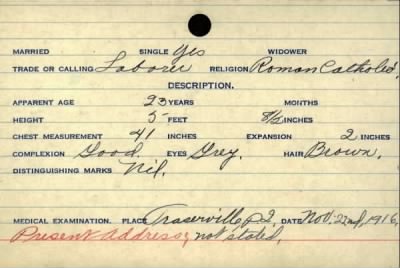 MARRIED SINGLE Yes WIDOWER
TRADE OR CALLING Laborer RELIGION Roman Catholic.
DESCRIPTION.
APPARENT AGE 23 YEARS MONTHS
HEIGHT 5 FEET 8½ INCHES
CHEST MEASUREMENT 41 INCHES EXPANSION 2 INCHES
COMPLEXION Good. EYES Grey. HAIR Brown.
DISTINGUISHING MARKS Nil.
MEDICAL EXAMINATION. PLACE Fraserville, P.2. DATE Nov. 22nd, 1916.
Present Address; not stated,